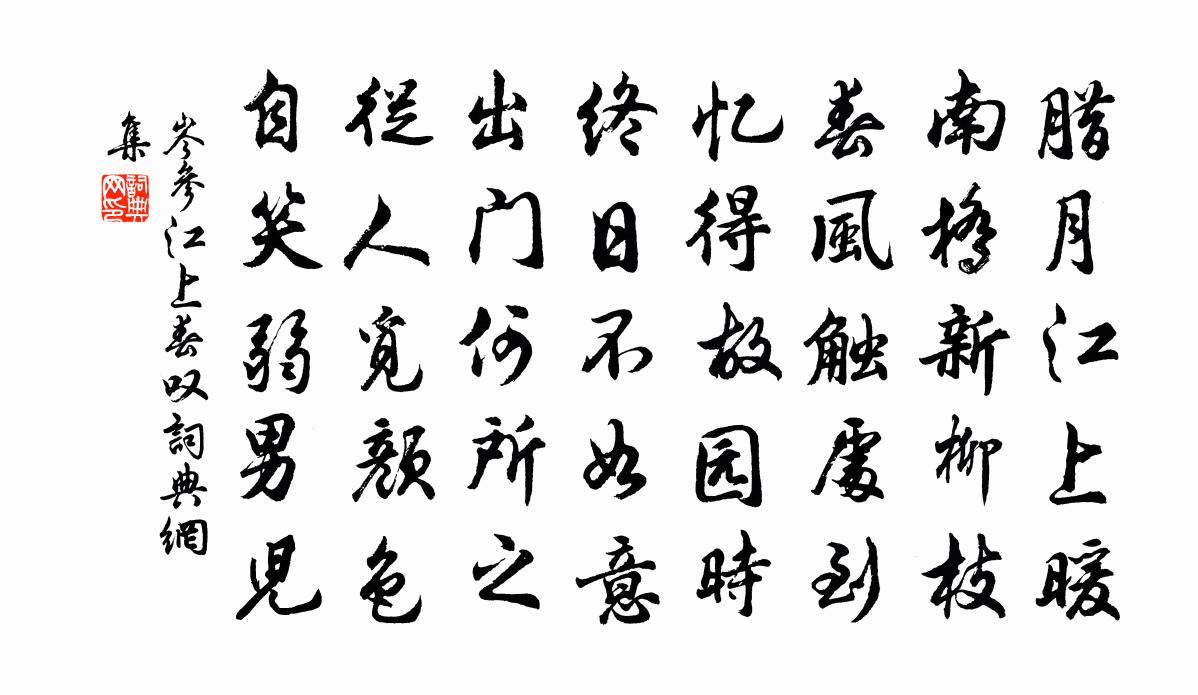 腊月江上暖
南橋新柳枝
春風触處到
忆得故园時
终日不如意
出门何所之
從人觅颜色
自笑弱男児
岑參江上春叹詞典網
集
詞典
网印